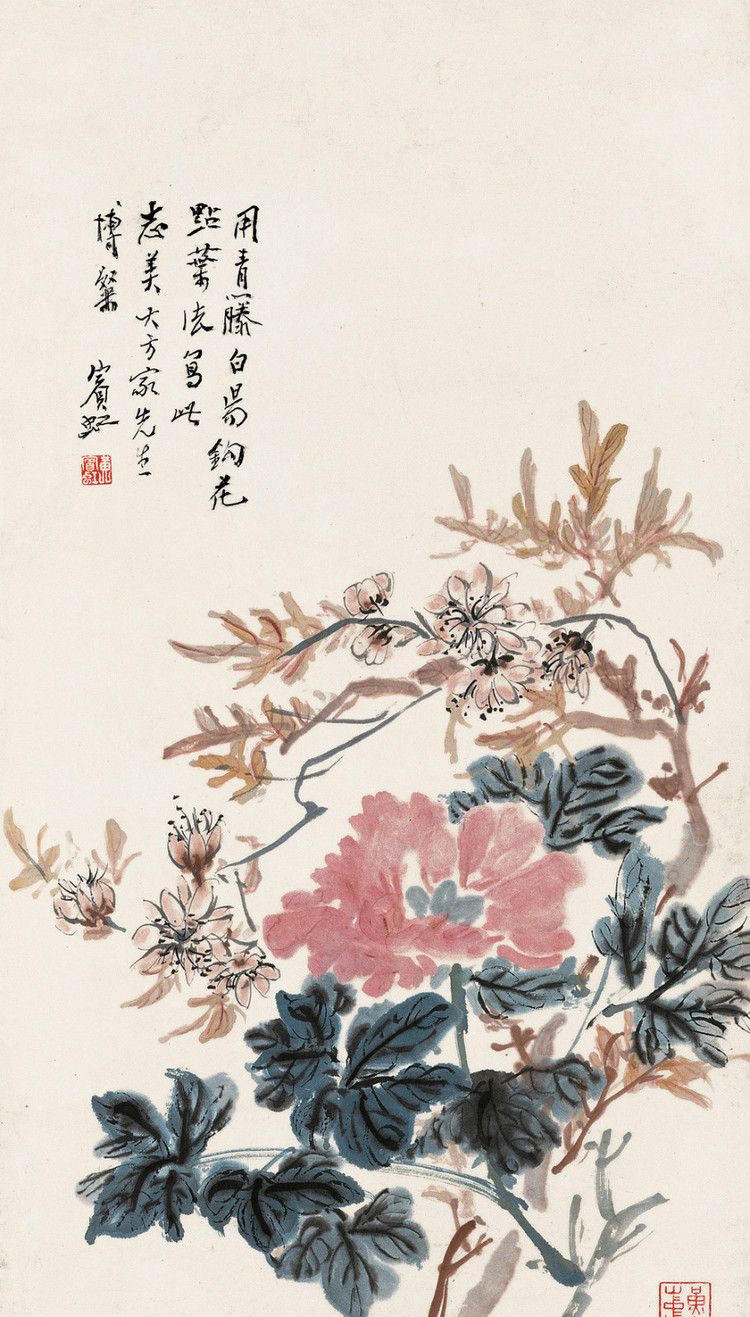 用青藤白昜鉤花
點葉法寫此
志美大方家先生
博粲 賓虹
黃賓虹